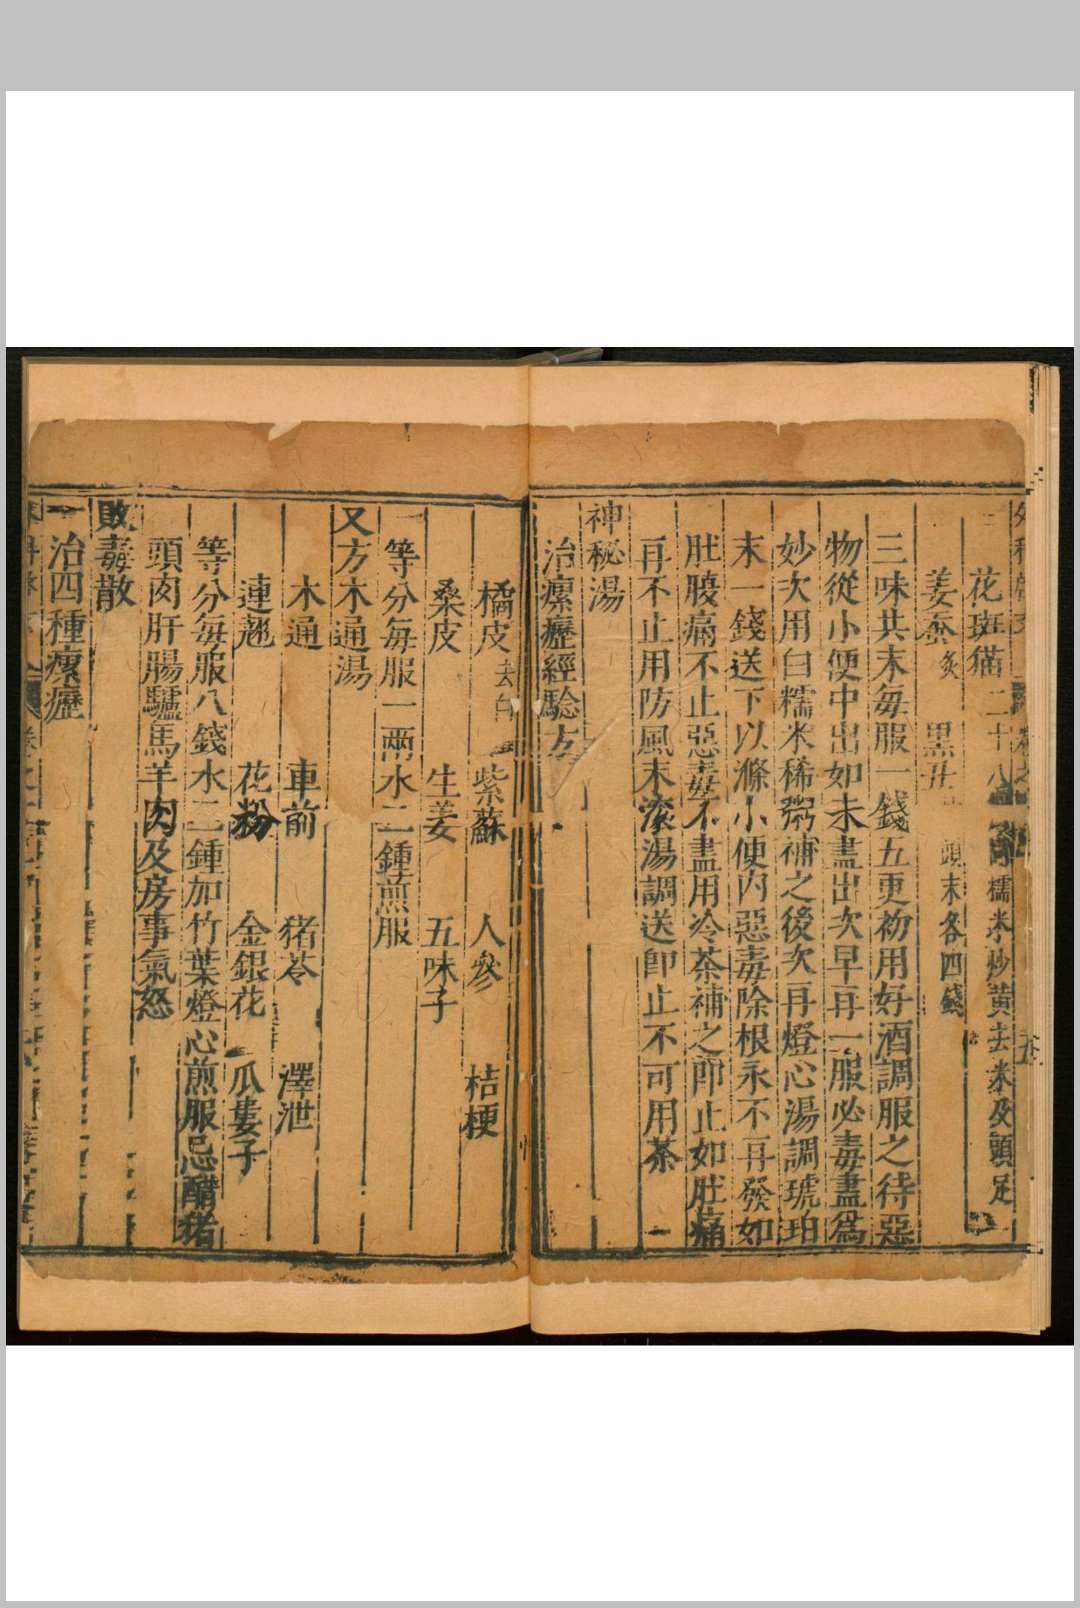 花斑猫二十八 糯米炒黃去米及頭足
姜蚕炙 黑丑 頭末各四錢
三味共末每服一錢五更初用好酒調服之待惡
物從小便中出如未盡出次早再一服必毒盡爲
妙次用白糯米稀粥補之後次再燈心湯調琥珀
末一錢送下以滌小便內惡毒除根永不再發如
肚腹痛不止惡毒不盡用冷茶補之卽止如肚痛
再不止用防風末滚湯調送卽止不可用茶
神秘湯
治瘰癧經驗方
橘皮去白 紫蘇 人參 桔梗
桑皮 生姜 五味子
等分每服一兩水二鍾煎服
又方木通湯
木通 車前 猪苓 澤泄
連翹 花粉 金銀花 瓜蔞子
等分每服八錢水二鍾加竹葉燈心煎服忌醋猪
頭肉肝腸驢馬羊肉及房事氣怒
敗毒散
一治四種瘰癧